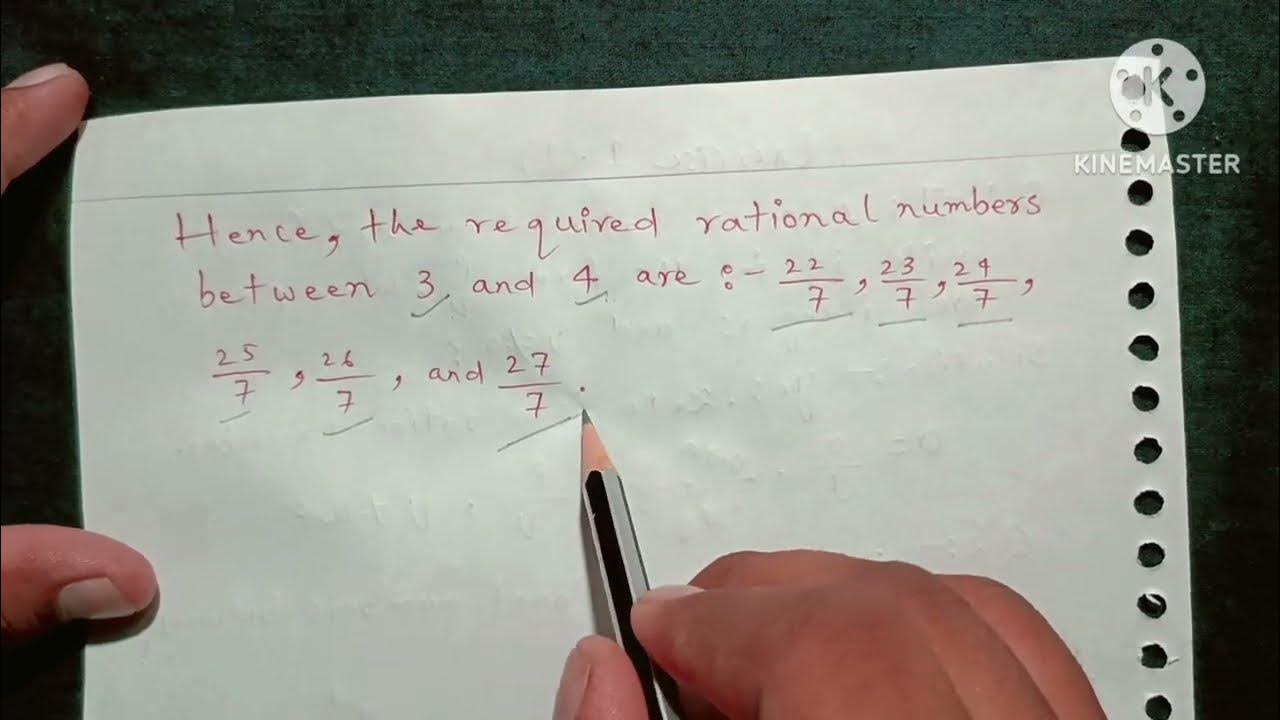 KINEMASTER
Hence, the required rational numbers
between 3 and 4 are :- 22/7, 23/7, 24/7,
25/7, 26/7, and 27/7.